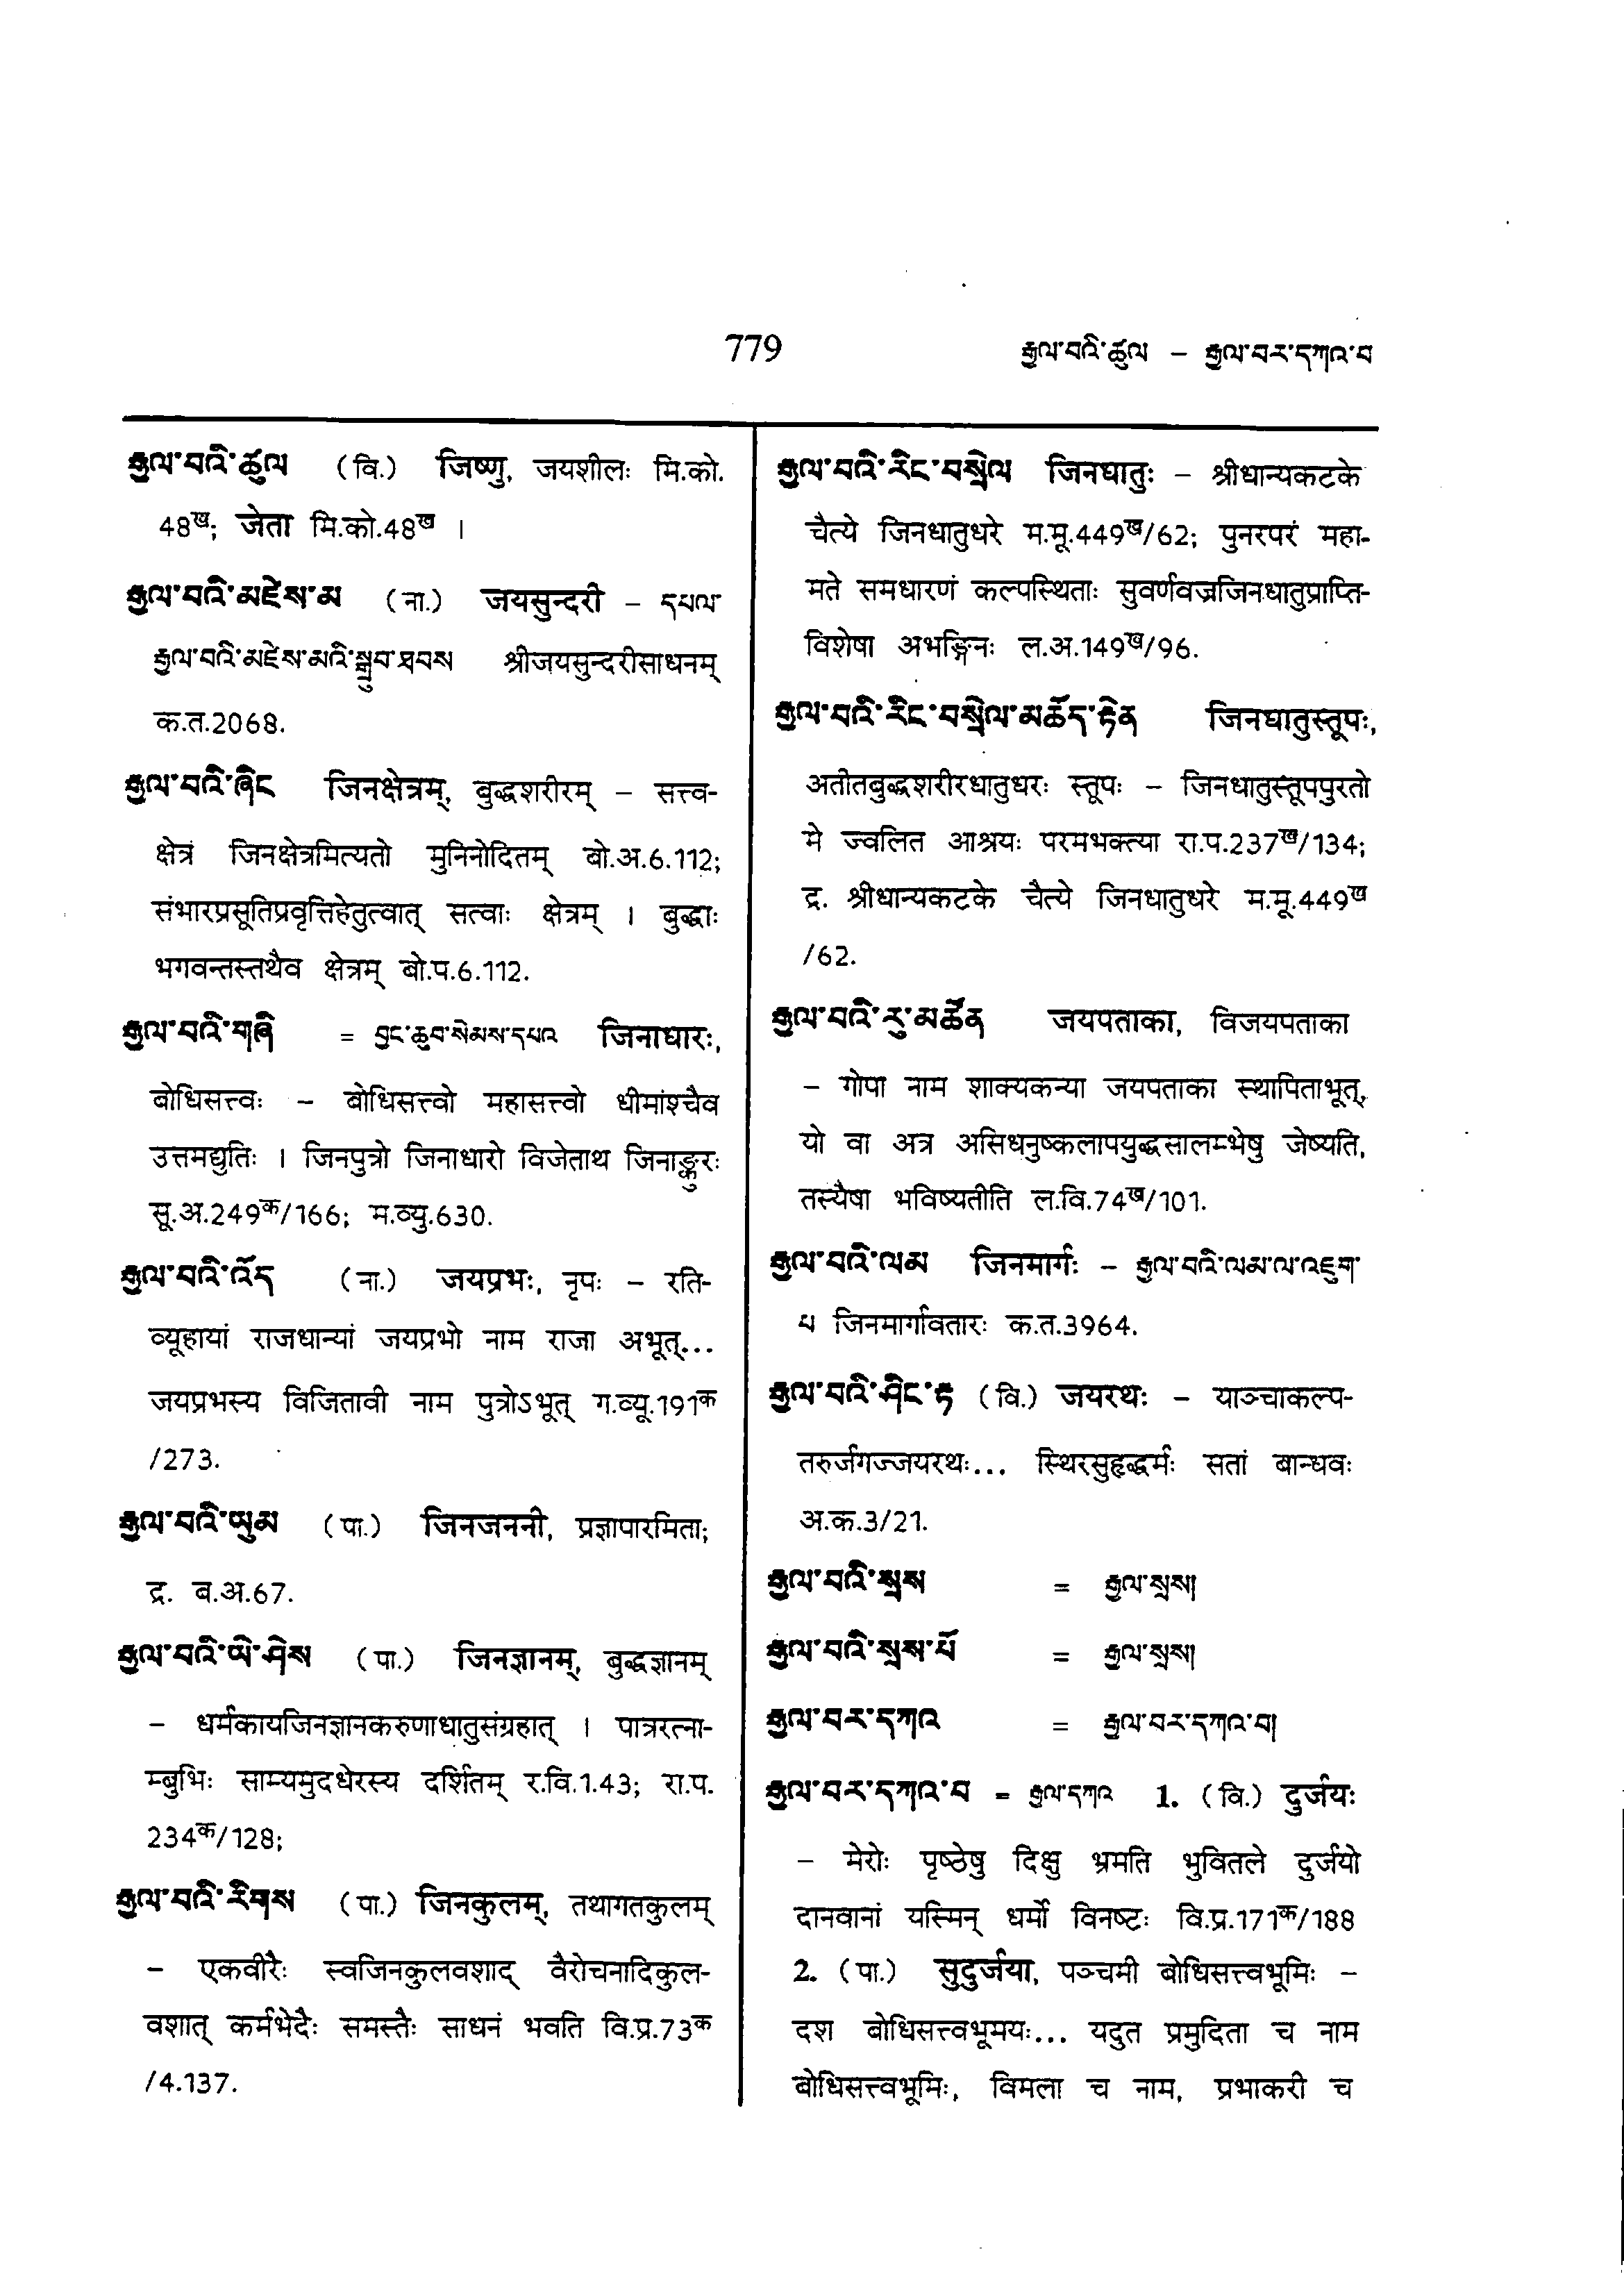 779 རྒྱལ་བའི་ཚུལ – རྒྱལ་བར་དཀའ་བ
རྒྱལ་བའི་ཚུལ (वि.) जिष्णु, जयशीलः मि.को.
48ख; जेता मि.को.48ख ।
རྒྱལ་བའི་མཛེས་མ (ना.) जयसुन्दरी – དཔལ་
རྒྱལ་བའི་མཛེས་མའི་སྒྲུབ་ཐབས श्रीजयसुन्दरीसाधनम्
क.त.2068.
རྒྱལ་བའི་ཞིང जिनक्षेत्रम्, बुद्धशरीरम् – सत्त्व-
क्षेत्रं जिनक्षेत्रमित्यतो मुनिनोदितम् बो.अ.6.112;
संभारप्रसूतिप्रवृत्तिहेतुत्वात् सत्वाः क्षेत्रम् । बुद्धाः
भगवन्तस्तथैव क्षेत्रम् बो.प.6.112.
རྒྱལ་བའི་གཞི = བྱང་ཆུབ་སེམས་དཔའ जिनाधारः,
बोधिसत्त्वः – बोधिसत्त्वो महासत्त्वो धीमांश्चैव
उत्तमद्युतिः । जिनपुत्रो जिनाधारो विजेताथ जिनाङ्कुरः
सू.अ.249क/166; म.व्यु.630.
རྒྱལ་བའི་འོད (ना.) जयप्रभः, नृपः – रति-
व्यूहायां राजधान्यां जयप्रभो नाम राजा अभूत्...
जयप्रभस्य विजितावी नाम पुत्रोऽभूत् ग.व्यू.191क
/273.
རྒྱལ་བའི་ཡུམ (पा.) जिनजननी, प्रज्ञापारमिता;
द्र. ब.अ.67.
རྒྱལ་བའི་ཡེ་ཤེས (पा.) जिनज्ञानम्, बुद्धज्ञानम्
– धर्मकायजिनज्ञानकरुणाधातुसंग्रहात् । पात्ररत्ना-
म्बुभिः साम्यमुदधेरस्य दर्शितम् र.वि.1.43; रा.प.
234क/128;
རྒྱལ་བའི་རིགས (पा.) जिनकुलम्, तथागतकुलम्
– एकवीरैः स्वजिनकुलवशाद् वैरोचनादिकुल-
वशात् कर्मभेदैः समस्तैः साधनं भवति वि.प्र.73क
/4.137.
རྒྱལ་བའི་རིང་བསྲེལ जिनधातुः – श्रीधान्यकटके
चैत्ये जिनधातुधरे म.मू.449ख/62; पुनरपरं महा-
मते समधारणं कल्पस्थिताः सुवर्णवज्रजिनधातुप्राप्ति-
विशेषा अभङ्गिनः ल.अ.149ख/96.
རྒྱལ་བའི་རིང་བསྲེལ་མཆོད་རྟེན जिनधातुस्तूपः,
अतीतबुद्धशरीरधातुधरः स्तूपः – जिनधातुस्तूपपुरतो
मे ज्वलित आश्रयः परमभक्त्या रा.प.237ख/134;
द्र. श्रीधान्यकटके चैत्ये जिनधातुधरे म.मू.449ख
/62.
རྒྱལ་བའི་རུ་མཚོན जयपताका, विजयपताका
– गोपा नाम शाक्यकन्या जयपताका स्थापिताभूत्,
यो वा अत्र असिधनुष्कलापयुद्धसालम्भेषु जेष्यति,
तस्यैषा भविष्यतीति ल.वि.74ख/101.
རྒྱལ་བའི་ལམ जिनमार्गः – རྒྱལ་བའི་ལམ་ལ་འཇུག་
པ जिनमार्गावतारः क.त.3964.
རྒྱལ་བའི་ཤིང་རྟ (वि.) जयरथः – याञ्चाकल्प-
तरुर्जगज्जयरथः... स्थिरसुहृद्धर्मः सतां बान्धवः
अ.क.3/21.
རྒྱལ་བའི་སྲས = རྒྱལ་སྲས།
རྒྱལ་བའི་སྲས་པོ = རྒྱལ་སྲས།
རྒྱལ་བར་དཀའ = རྒྱལ་བར་དཀའ་བ།
རྒྱལ་བར་དཀའ་བ = རྒྱལ་དཀའ 1. (वि.) दुर्जयः
– मेरोः पृष्ठेषु दिक्षु भ्रमति भुवितले दुर्जयो
दानवानां यस्मिन् धर्मो विनष्टः वि.प्र.171क/188
2. (पा.) सुदुर्जया, पञ्चमी बोधिसत्त्वभूमिः –
दश बोधिसत्त्वभूमयः... यदुत प्रमुदिता च नाम
बोधिसत्त्वभूमिः, विमला च नाम, प्रभाकरी च